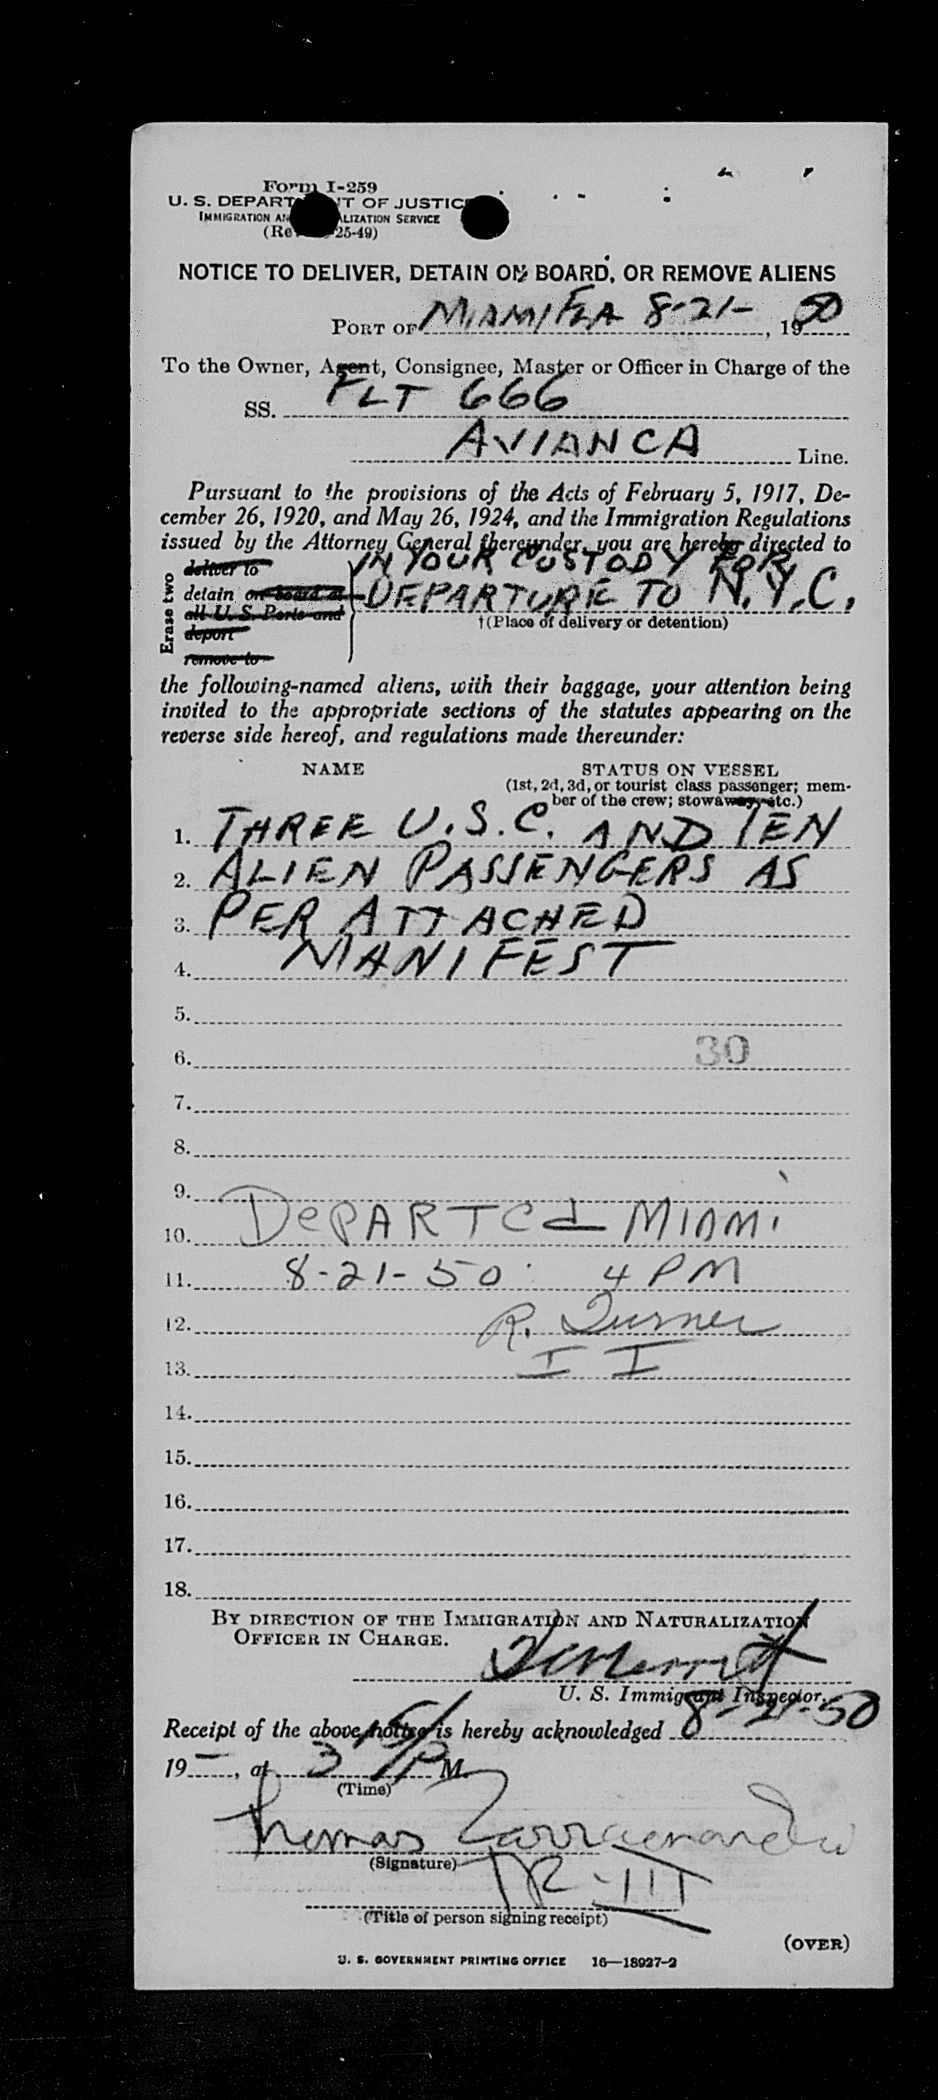 Form I-259
U. S. DEPART T OF JUSTIC
IMMIGRATION AN ALIZATION SERVICE
(Re 25-49)
NOTICE TO DELIVER, DETAIN ON BOARD, OR REMOVE ALIENS
PORT OF MIAMI FLA 8-21-, 1950
To the Owner, Agent, Consignee, Master or Officer in Charge of the
SS. FLT 666
AVIANCA Line.
Pursuant to the provisions of the Acts of February 5, 1917, De-
cember 26, 1920, and May 26, 1924, and the Immigration Regulations
issued by the Attorney General thereunder, you are hereby directed to
Erase two
deliver to
detain on board at
all U. S. Ports and
deport
remove to
IN YOUR CUSTODY FOR
DEPARTURE TO N.Y.C.
†(Place of delivery or detention)
the following-named aliens, with their baggage, your attention being
invited to the appropriate sections of the statutes appearing on the
reverse side hereof, and regulations made thereunder:
NAME STATUS ON VESSEL
(1st, 2d, 3d, or tourist class passenger; mem-
ber of the crew; stowaway, etc.)
1. THREE U.S.C. AND TEN
2. ALIEN PASSENGERS AS
3. PER ATTACHED
4. MANIFEST
5.
6. 30
7.
8.
9.
10. DePARTed MIAMI
11. 8-21-50 4 PM
12. R. Turner
13. I I
14.
15.
16.
17.
18.
BY DIRECTION OF THE IMMIGRATION AND NATURALIZATION
OFFICER IN CHARGE.
U. S. Immigrant Inspector.
Receipt of the above notice is hereby acknowledged 8-21-50
19 —, at 3 15/P M.
(Time)
Thomas
(Signature)
TR-III
(Title of person signing receipt)
(OVER)
U. S. GOVERNMENT PRINTING OFFICE 16—18927-2